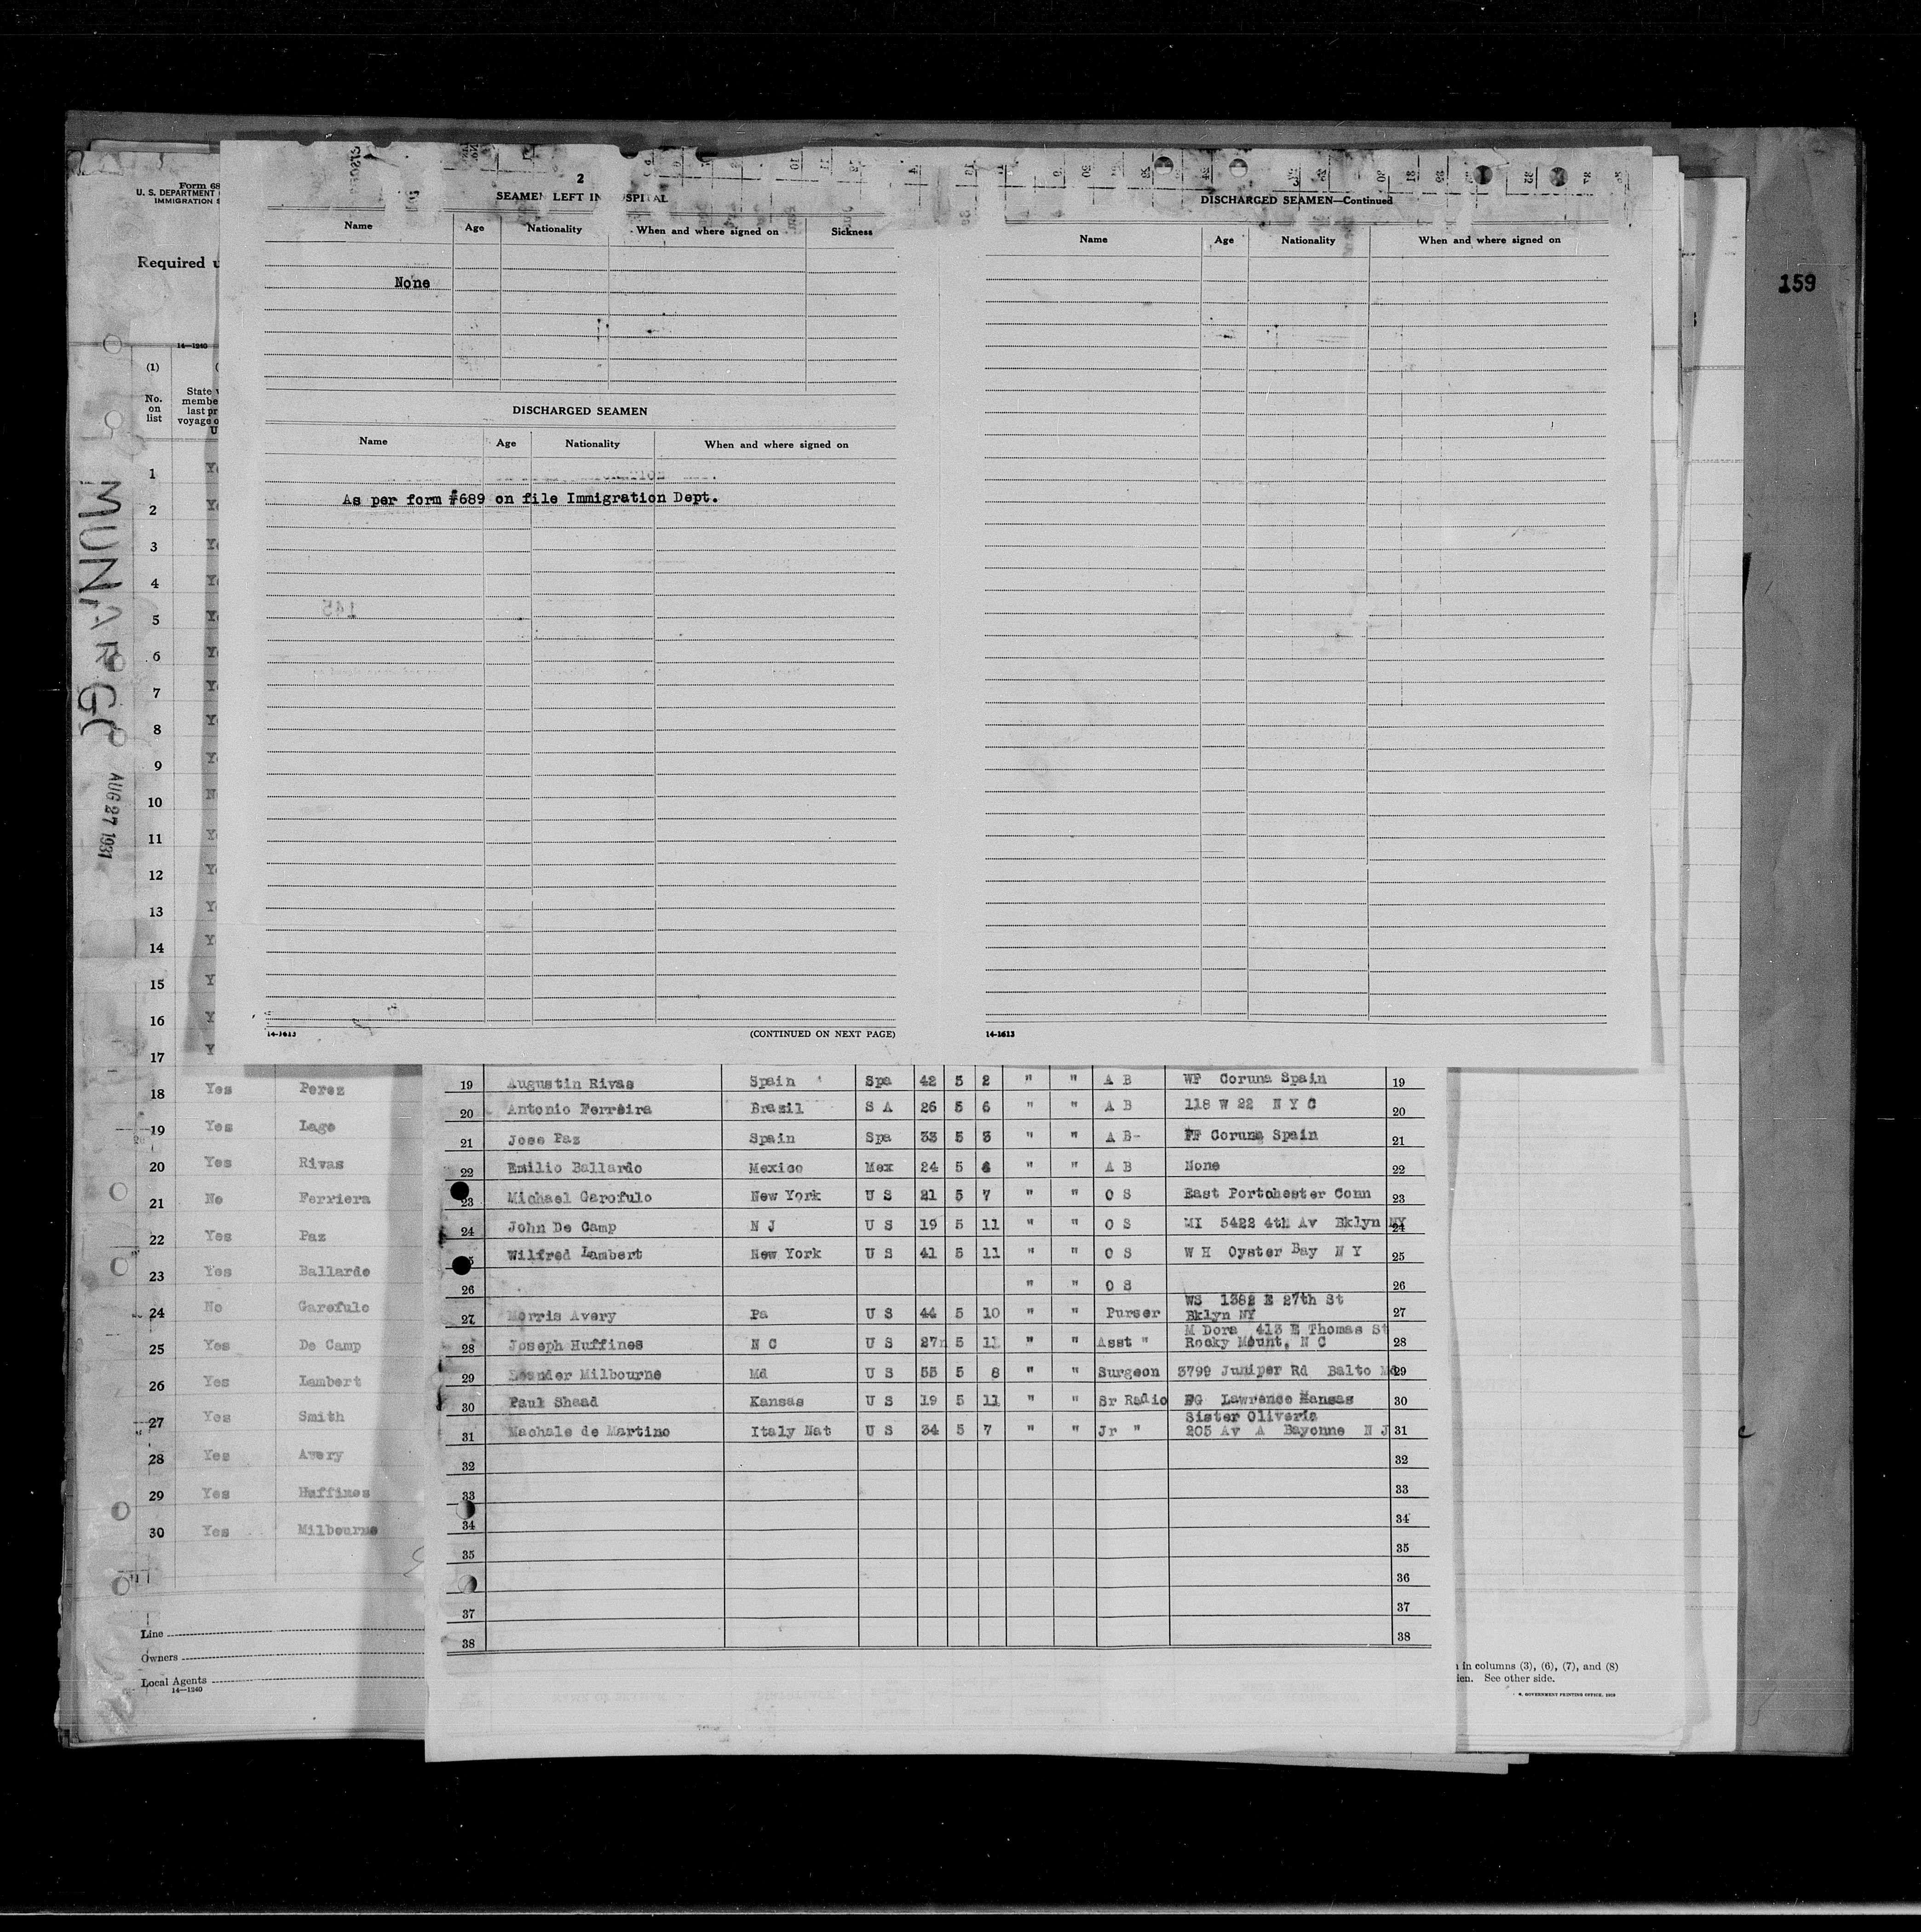 159
Form 68
U. S. DEPARTMENT
IMMIGRATION S
Required u
14—1240
(1)
No.
on
list
State
membe
last pr
voyage o
U
MUNARGO
AUG 27 1931
1
2
3
4
5
6
7
8
9
10
11
12
13
14
15
16
17
18 Yes Perez
19 Yes Lago
20 Yes Rivas
21 No Ferriera
22 Yes Paz
23 Yes Ballardo
24 No Garofulo
25 Yes De Camp
26 Yes Lambert
27 Yes Smith
28 Yes Avery
29 Yes Huffines
30 Yes Milbourne
Line
Owners
Local Agents
14—1240
2
SEAMEN LEFT IN OSPITAL
Name Age Nationality When and where signed on Sickness
None
DISCHARGED SEAMEN
Name Age Nationality When and where signed on
As per form #689 on file Immigration Dept.
145
14-1613 (CONTINUED ON NEXT PAGE)
3
DISCHARGED SEAMEN—Continued
Name Age Nationality When and where signed on
14-1613
19 Augustin Rivas Spain Spa 42 5 2 " " A B WF Coruna Spain 19
20 Antonio Ferreira Brazil S A 26 5 6 " " A B 118 W 22 N Y C 20
21 Jose Paz Spain Spa 33 5 3 " " A B- FF Coruna Spain 21
22 Emilio Ballardo Mexico Mex 24 5 " " A B None 22
23 Michael Garofulo New York U S 21 5 7 " " O S East Portchester Conn 23
24 John De Camp N J U S 19 5 11 " " O S MI 5422 4th Av Bklyn NY 24
25 Wilfred Lambert New York U S 41 5 11 " " O S W H Oyster Bay N Y 25
26 " " O S 26
27 Morris Avery Pa U S 44 5 10 " " Purser WS 1382 E 27th St
Bklyn NY 27
28 Joseph Huffines N C U S 27 5 11 " " Asst " M Dora 413 E Thomas St
Rocky Mount, N C 28
29 Leander Milbourne Md U S 55 5 8 " " Surgeon 3799 Juniper Rd Balto Md 29
30 Paul Shaad Kansas U S 19 5 11 " " Sr Radio FG Lawrence Kansas 30
31 Machale de Martino Italy Nat U S 34 5 7 " " Jr " Sister Oliveria
205 Av A Bayonne N J 31
32 32
33 33
34 34
35 35
36
37 37
38 38
in columns (3), (6), (7), and (8)
ien. See other side.
GOVERNMENT PRINTING OFFICE, 1929